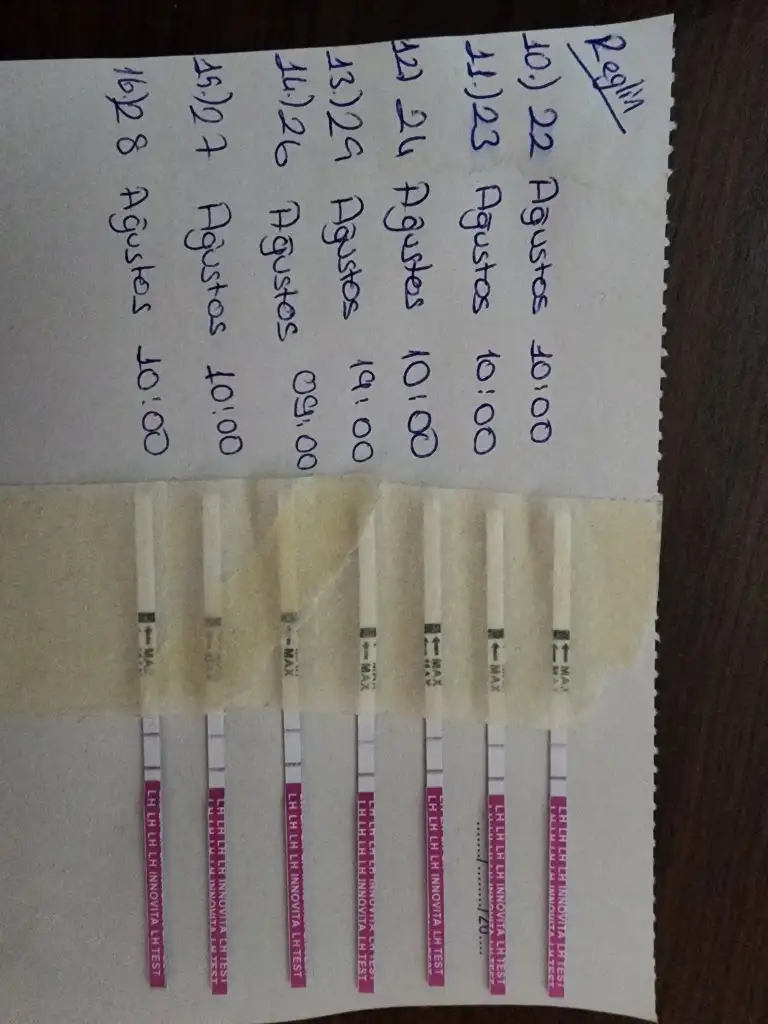 Reglin
10.) 22 Ağustos 10:00
11.) 23 Ağustos 10:00
12) 24 Ağustos 10:00
13.) 25 Ağustos 19:00
14.) 26 Ağustos 09:00
15.) 27 Ağustos 10:00
16.) 28 Ağustos 10:00
MAX
LH LH LH LH INNOVITA LH TEST
MAX
LH LH LH LH INNOVITA LH TEST
......./......./20....
MAX
LH LH LH LH INNOVITA LH TEST
MAX
LH LH LH LH INNOVITA LH TEST
MAX
LH LH LH LH INNOVITA LH TEST
MAX
LH LH LH LH INNOVITA LH TEST
MAX
LH LH LH LH INNOVITA LH TEST